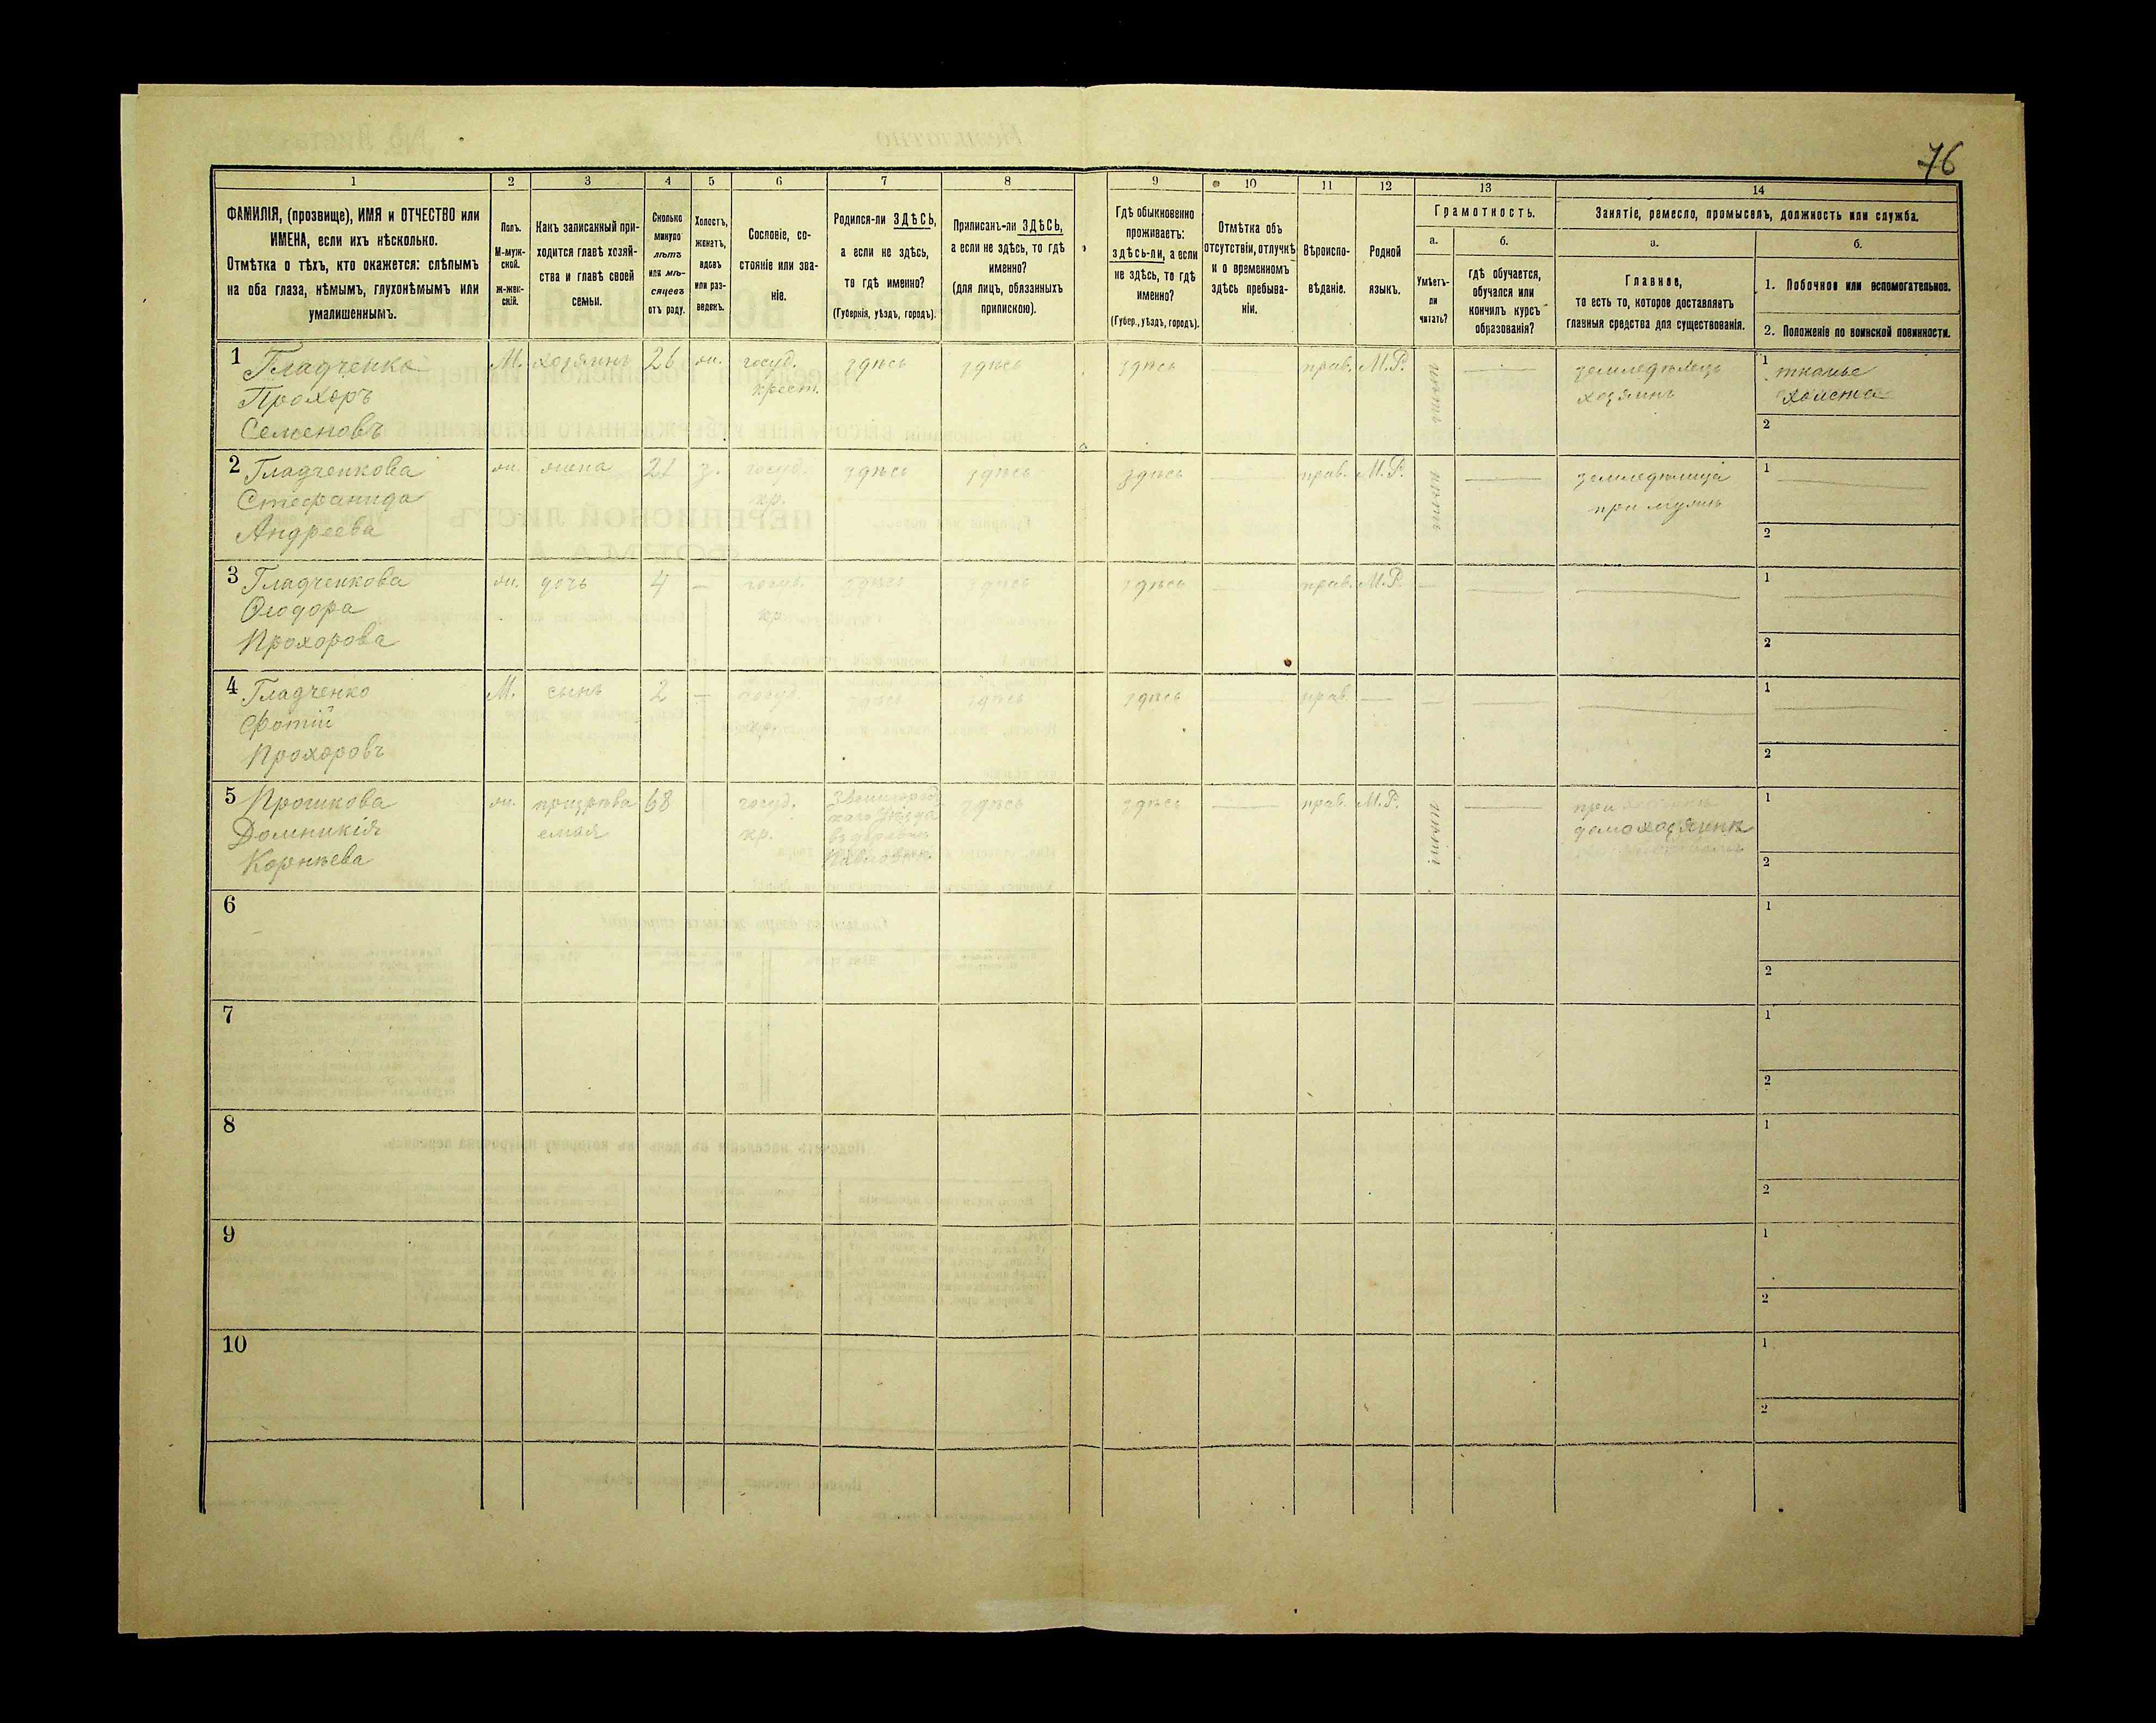 76
1 2 3 4 5 6 7 8 9 10 11 12 13 14
ФАМИЛІЯ, (прозвище), ИМЯ и ОТЧЕСТВО или
ИМЕНА, если ихъ нѣсколько.
Отмѣтка о тѣхъ, кто окажется: слѣпымъ
на оба глаза, нѣмымъ, глухонѣмымъ или
умалишеннымъ.
Полъ.
М-муж-
ской.
ж-жен-
скій.
Какъ записанный при-
ходится главѣ хозяй-
ства и главѣ своей
семьи.
Сколько
минуло
лѣтъ
или мѣ-
сяцевъ
отъ роду.
Холостъ,
женатъ,
вдовъ
или раз-
веденъ.
Сословіе, со-
стояніе или зва-
ніе.
Родился-ли ЗДѢСЬ,
а если не здѣсь,
то гдѣ именно?
(Губернія, уѣздъ, городъ).
Приписанъ-ли ЗДѢСЬ,
а если не здѣсь, то гдѣ
именно?
(для лицъ, обязанныхъ
припискою).
Гдѣ обыкновенно
проживаетъ:
здѣсь-ли, а если
не здѣсь, то гдѣ
именно?
(Губер., уѣздъ, городъ).
Отмѣтка объ
отсутствіи, отлучкѣ
и о временномъ
здѣсь пребыва-
ніи.
Вѣроиспо-
вѣданіе.
Родной
языкъ.
Грамотность.
а.
Умѣетъ-
ли
читать?
б.
гдѣ обучается,
обучался или
кончилъ курсъ
образованія?
Занятіе, ремесло, промыселъ, должность или служба.
а.
Главное,
то есть то, которое доставляетъ
главныя средства для существованія.
б.
1. Побочное или вспомогательное.
2. Положеніе по воинской повинности.
1 Гладченко М. хозяинъ 26 ж. госуд. здѣсь здѣсь здѣсь — прав. М.Р. — земледѣлецъ 1 тканье
Прохоръ крест. хозяинъ холста
Семеновъ 2
2 Гладченкова ж. жена 21 з. госуд. здѣсь здѣсь здѣсь — прав. М.Р. нѣтъ — земледѣлица 1 —
Стефанида кр. при мужѣ
Андреева 2
3 Гладченкова ж. дочь 4 — госуд. здѣсь здѣсь здѣсь — прав. М.Р. — — — 1 —
Ѳеодора кр.
Прохорова 2
4 Гладченко М. сынъ 2 — госуд. здѣсь здѣсь здѣсь — прав. — — — — 1 —
Фотій кр.
Прохоровъ 2
5 Прошкова ж. призрѣва 68 госуд. Звенигород здѣсь здѣсь — прав. М.Р. нѣтъ — при 1
Домникія емая кр. каго уѣзда домохозяинѣ
Корнѣева въ деревнѣ 2
6 1
2
7 1
2
8 1
2
9 1
2
10 1
2